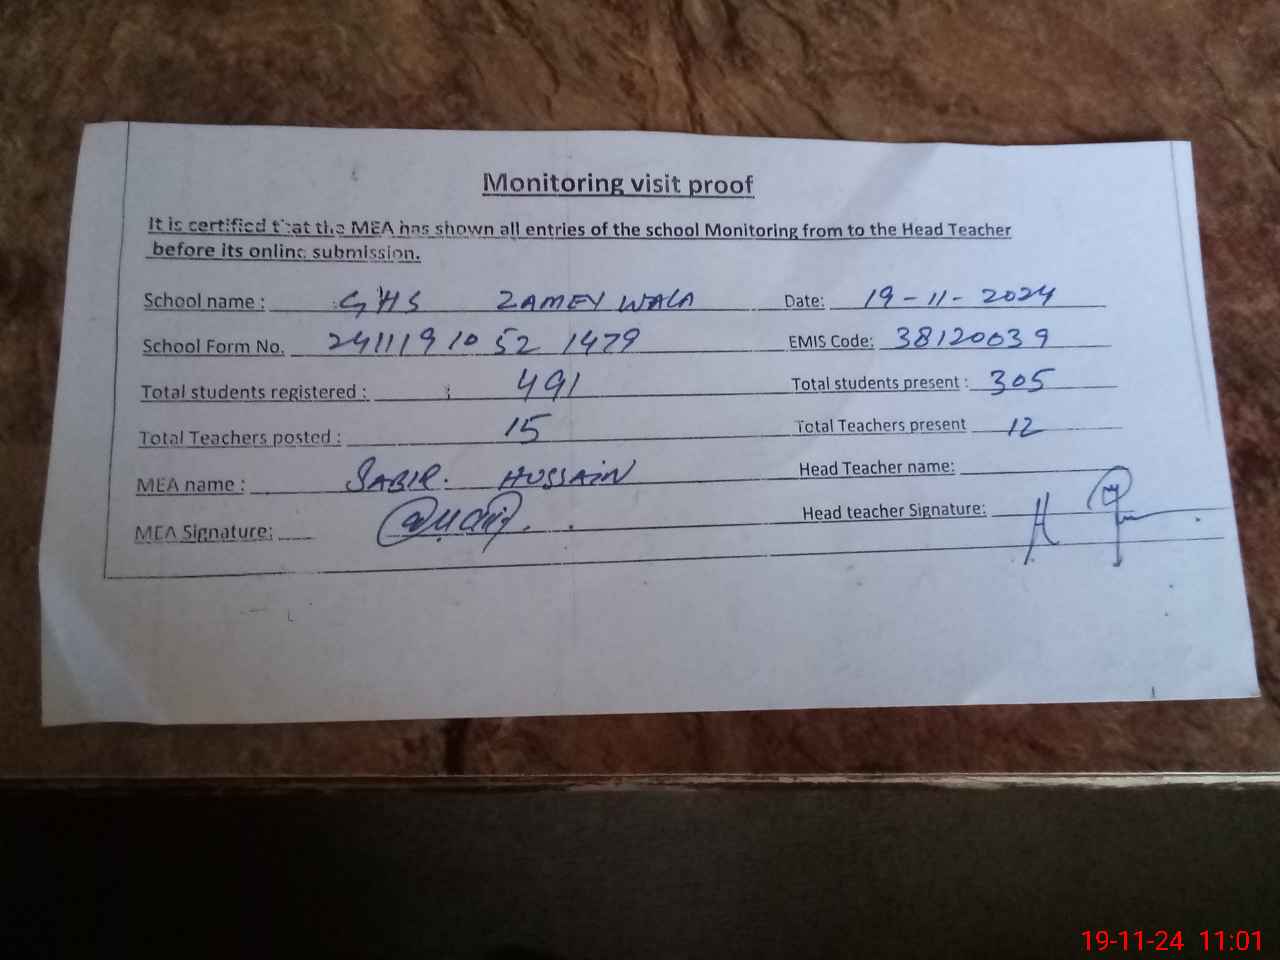 Monitoring visit proof
It is certified that the MEA has shown all entries of the school Monitoring from to the Head Teacher
before its online submission.
School name : GHS ZAMEY WALA Date: 19-11-2024
School Form No. 241119 10 52 1479 EMIS Code: 38120039
Total students registered : 491 Total students present : 305
Total Teachers posted : 15 Total Teachers present 12
MEA name : SABIR. HUSSAIN Head Teacher name:
MEA Signature: Head teacher Signature:
19-11-24 11:01